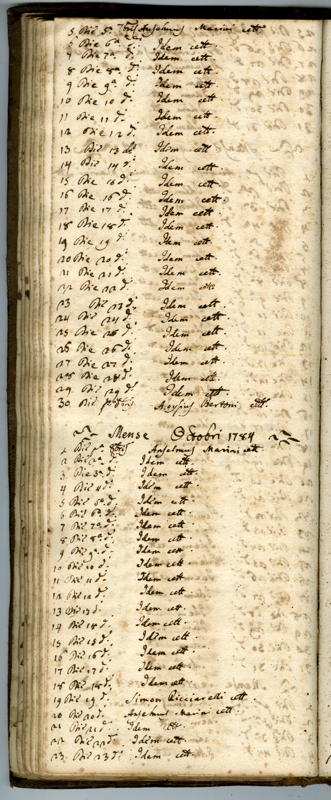 5 Die 5ª Anselmus Marini cett.
6 Die 6ª d. Idem cett.
7 Die 7ª d. Idem cett.
8 Die 8ª d. Idem cett.
9 Die 9ª d. Idem cett
10 Die 10 d. Idem cett.
11 Die 11 d. Idem cett.
12 Die 12 d. Idem cett.
13 Die 13 d. Idem cett
14 Die 14 d. Idem cett
15 Die 15 d. Idem cett
16 Die 16 d. Idem cett.
17 Die 17 d. Idem cett
18 Die 18 d. Idem cett.
19 Die 19 d. Idem cett
20 Die 20 d. Idem cett.
21 Die 21 d. Idem cett.
22 Die 22 d. Idem cett.
23 Die 23 d. Idem cett.
24 Die 24 d. Idem cett.
25 Die 25 d. Idem cett.
26 Die 26 d. Idem cett.
27 Die 27 d. Idem cett.
28 Die 28 d. Idem cett.
29 Die 29 d. Idem cett.
30 Die Aloysius Bertoni cett
Mense Octobri 1784
1 Die pª Anselmus Marini cett
2 Die 2ª d. Idem cett.
3 Die 3ª d. Idem cett.
4 Die 4 d. Idem cett.
5 Die 5ª d. Idem cett.
6 Die 6ª d. Idem cett.
7 Die 7ª d. Idem cett.
8 Die 8ª d. Idem cett.
9 Die 9ª d. Idem cett.
10 Die 10 d. Idem cett.
11 Die 11 d. Idem cett.
12 Die 12 d. Idem cett.
13 Die 13 d. Idem cett.
14 Die 14 d. Idem cett.
15 Die 15 d. Idem cett.
16 Die 16 d. Idem cett.
17 Die 17 d. Idem cett.
18 Die 18 d. Idem cett
19 Die 19 d. Simon Ricciarelli cett.
20 Die 20 d. Anselmus Marini cett
21 Die 21 d. Idem cett.
22 Die 22 d. Idem cett.
23 Die 23 d. Idem cett.